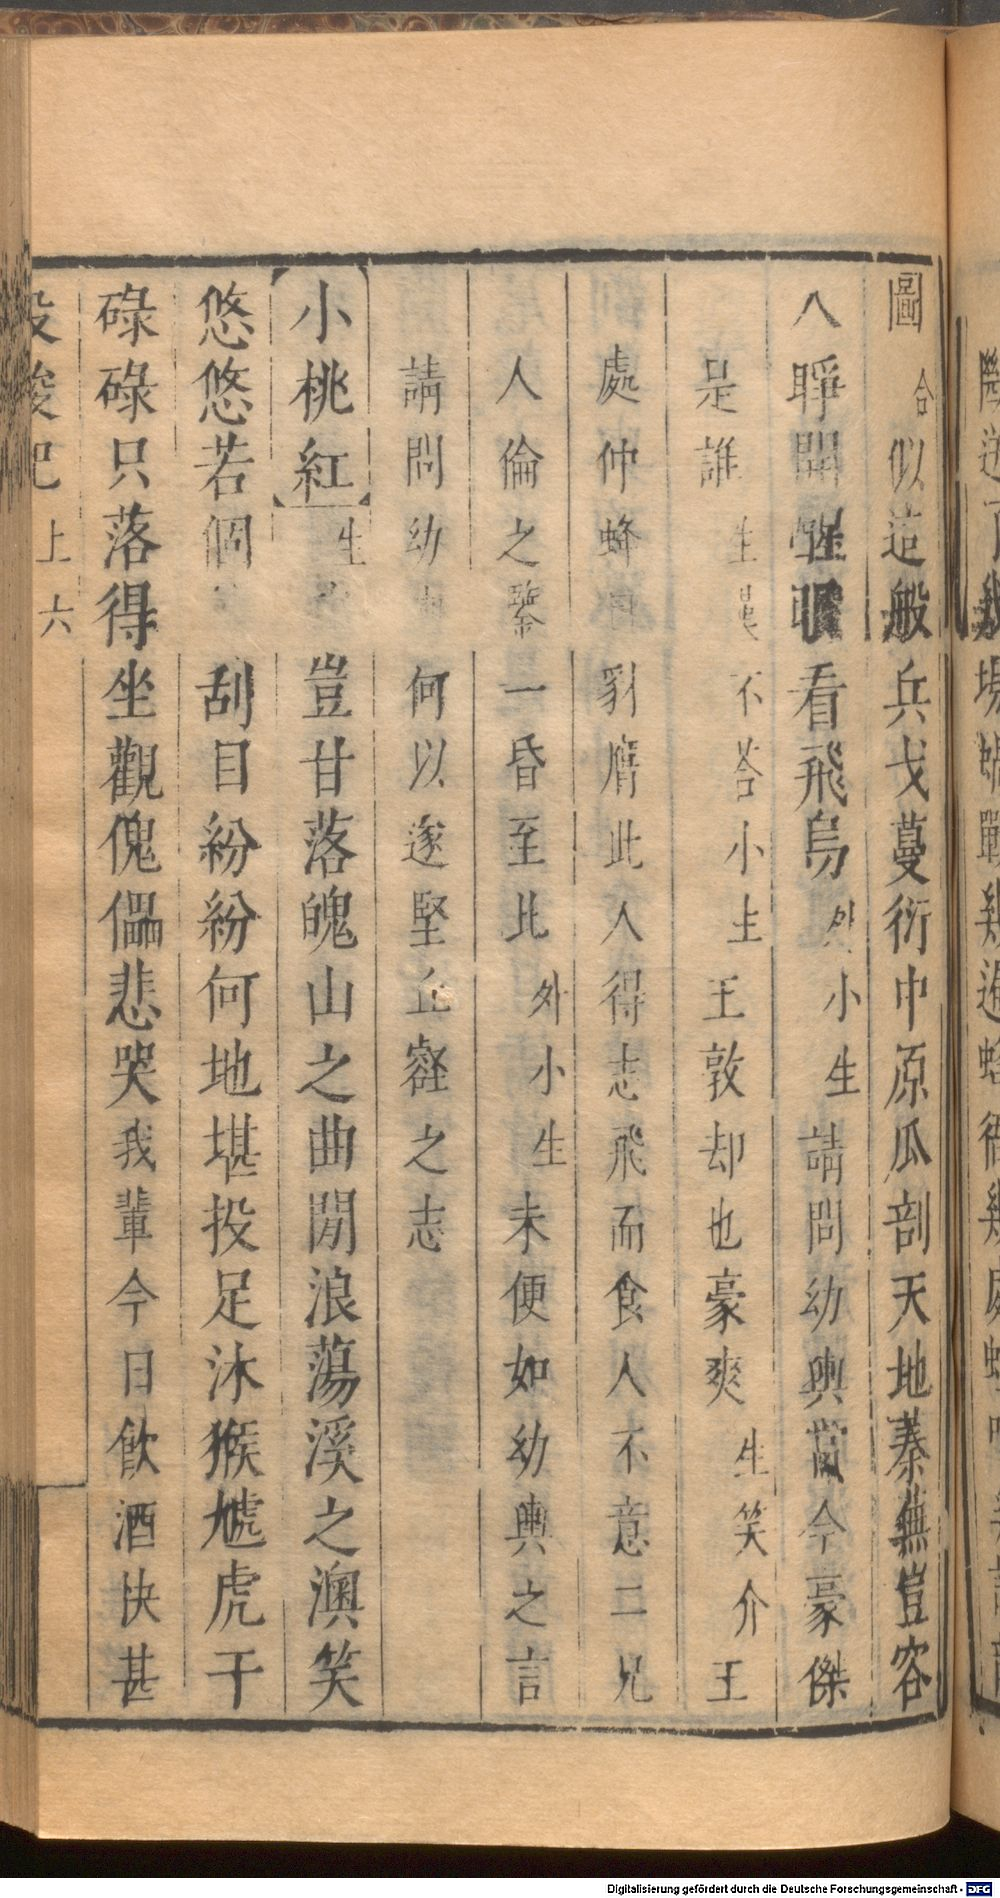 圖 合 似這般兵戈蔓衍中原瓜剖天地蓁蕪豈容
人睜開醒眼看飛烏 外小生 請問幼輿當今豪傑
是誰 生 不答小生 王敦却也豪爽 生笑介 王
處仲蜂目豺膺此人得志飛而食人不意二兄
人倫之鑒一昏至此 外小生 未便如幼輿之言
請問幼輿何以遂堅丘壑之志
小桃紅 生 豈甘落魄山之曲閒浪蕩溪之澳笑
悠悠若個 刮目紛紛何地堪投足沐猴虓虎干
碌碌只落得坐觀傀儡悲哭我輩今日飲酒快甚
投梭記 上 六
Digitalisierung gefördert durch die Deutsche Forschungsgemeinschaft - DFG